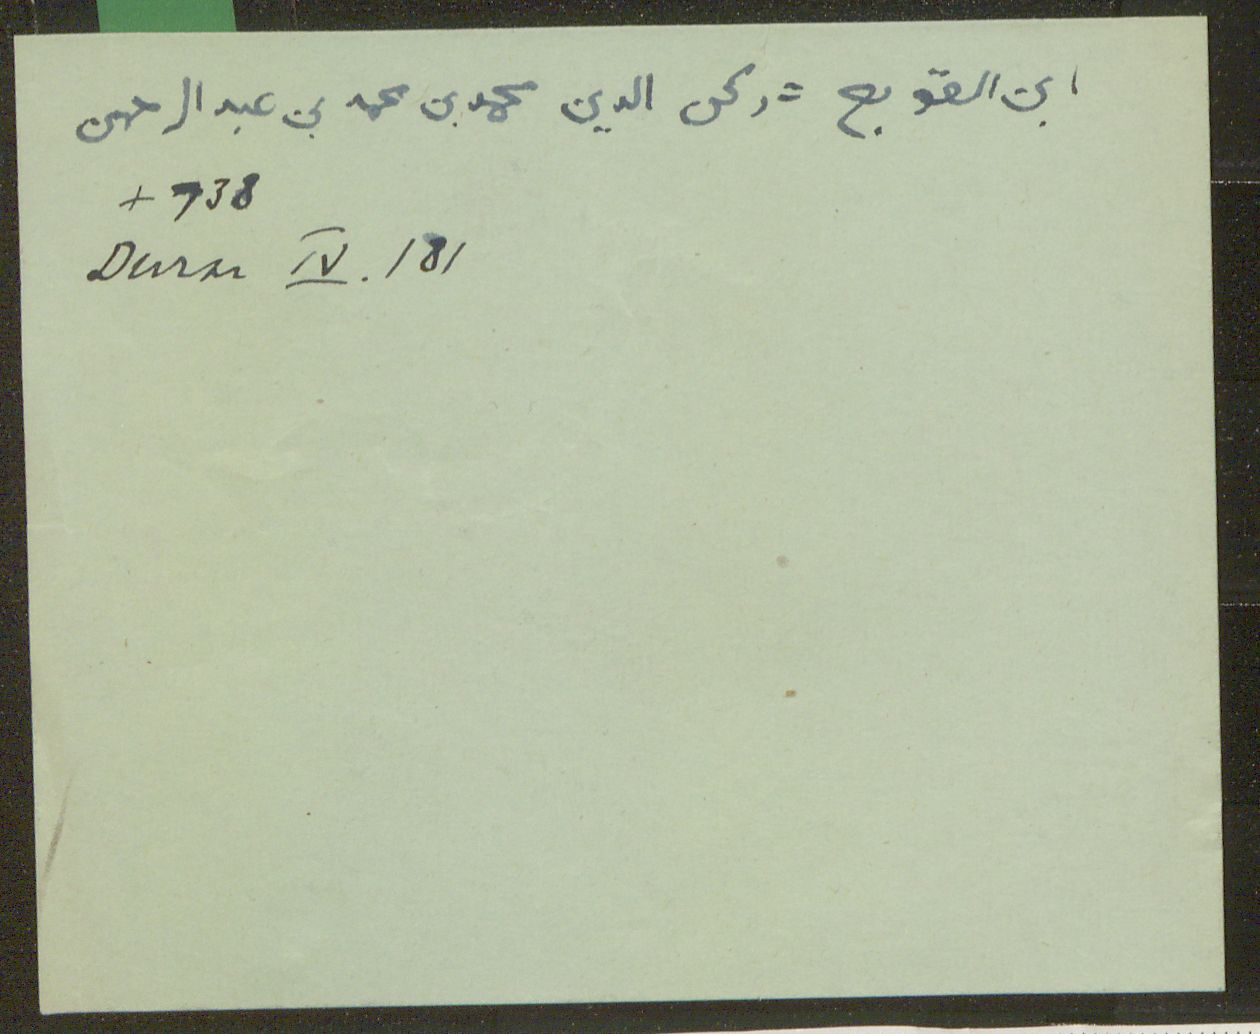 ابن القوبع = ركن الدين محمد بن محمد بن عبد الرحمن
+ 738
Durar IV. 181